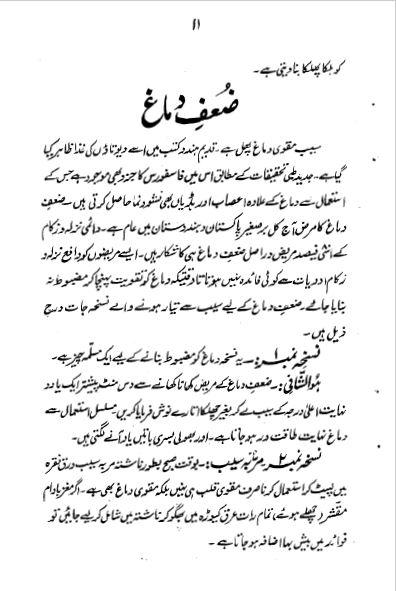 ۱۱
کو ہلکا پھلکا بنا دیتی ہے۔
ضُعفِ دماغ
سیب مقوی دماغ پھل ہے۔ قدیم ہندو کتب میں اسے دیوتاؤں کی غذا ظاہر کیا
گیا ہے۔ جدید طبی تحقیقات کے مطابق اس میں فاسفورس کا جزو بھی موجود ہے جس کے
استعمال سے دماغ کے علاوہ اعصاب اور ہڈیاں بھی نشوونما حاصل کرتی ہیں۔ ضعفِ
دماغ کا مرض آج کل برصغیر پاکستان و ہندوستان میں عام ہے۔ دائمی نزلہ و زکام
کے اسّی فیصد مریض دراصل ضعفِ دماغ ہی کا شکار ہیں۔ ایسے مریضوں کو دافع نزلہ و
زکام ادویات سے کوئی فائدہ نہیں ہوتا تا وقتیکہ دماغ کو تقویت پہنچا کر مضبوط نہ
بنایا جائے۔ ضعفِ دماغ کے لیے سیب سے تیار ہونے والے نسخہ جات درج
ذیل ہیں۔
نسخہ نمبر ۱:۔ یہ نسخہ دماغ کو مضبوط بنانے کے لیے ایک مسلّمہ چیز ہے۔
ہوالشّافی:۔ ضعفِ دماغ کے مریض کھانا کھانے سے دس منٹ پیشتر ایک یا دو
نہایت اعلیٰ درجہ کے سیب لے کر بغیر چھلکا اتارے نوش فرمایا کریں مسلسل استعمال سے
دماغ نہایت طاقت ور ہو جاتا ہے۔ اور بھولی بسری باتیں یاد آنے لگتی ہیں۔
نسخہ نمبر ۲۔ مربّہ سیب:۔ بوقت صبح بطور ناشتہ مربہ سیب ورق نقرہ
میں لپیٹ کر استعمال کرنا صرف مقوی قلب ہی نہیں بلکہ مقوی دماغ بھی ہے۔ اگر مغز بادام
مقشر (چھلے ہوئے) تمام رات عرق کیوڑہ میں بھگو کر ناشتہ میں شامل کر لیے جائیں تو
فوائد میں بیش بہا اضافہ ہو جاتا ہے۔